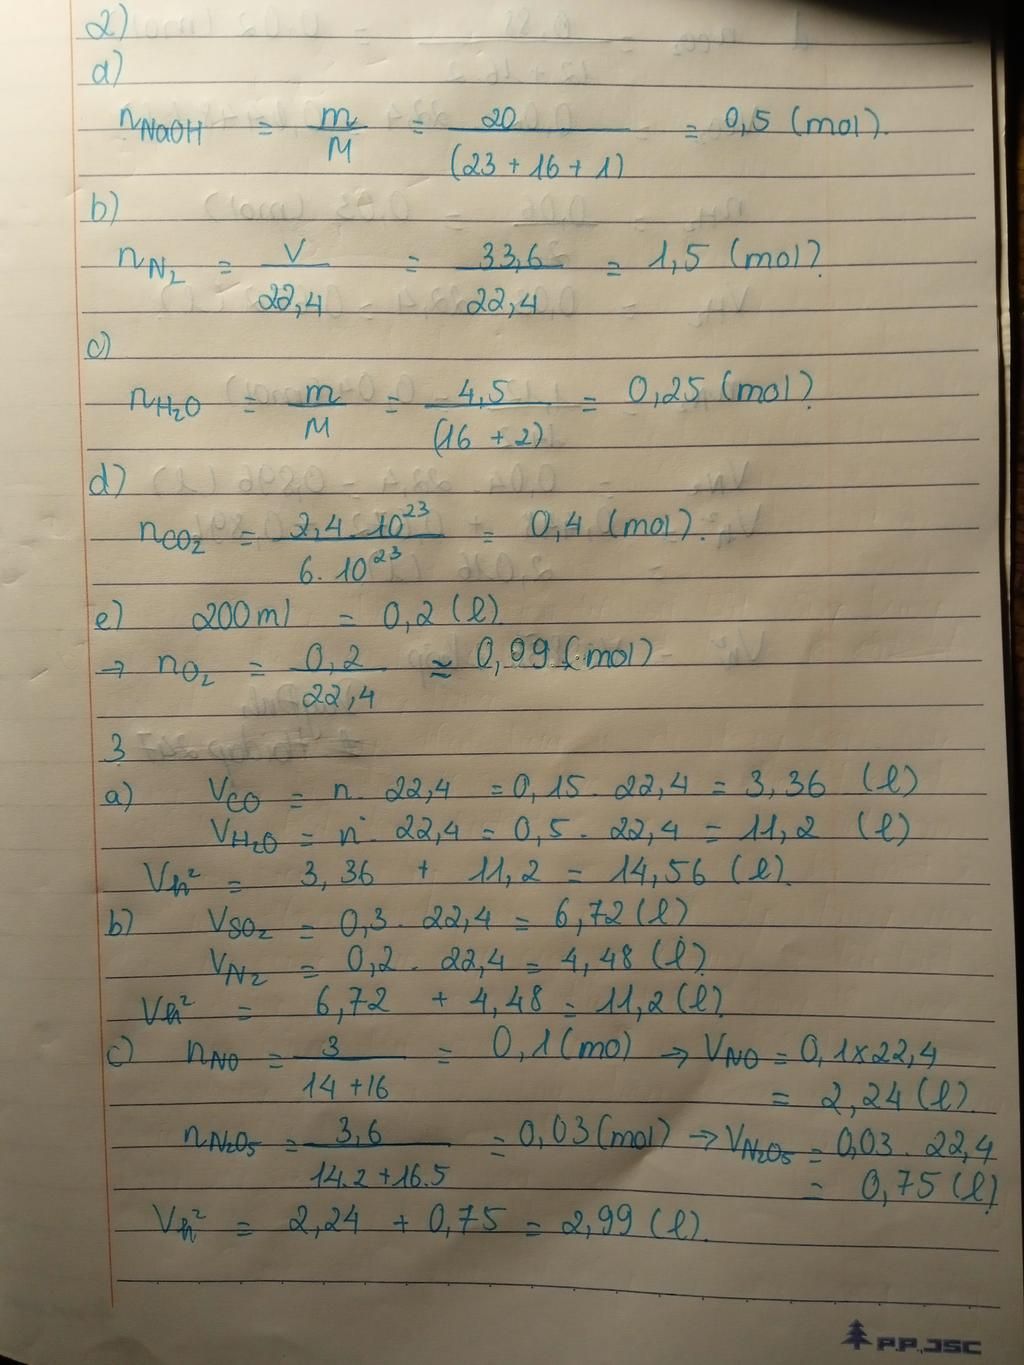 2)
a)
n NaOH = m/M = 20/(23 + 16 + 1) = 0,5 (mol).
b)
n N₂ = V/22,4 = 33,6/22,4 = 1,5 (mol).
c)
n H₂O = m/M = 4,5/(16 + 2) = 0,25 (mol).
d)
n CO₂ = 2,4 . 10²³/6. 10²³ = 0,4 (mol).
e) 200ml = 0,2 (l).
→ n O₂ = 0,2/22,4 ≈ 0,99 (mol)
3
a) V CO = n . 22,4 = 0,15 . 22,4 = 3,36 (l)
V H₂O = n . 22,4 = 0,5 . 22,4 = 11,2 (l)
Vh² = 3,36 + 11,2 = 14,56 (l).
b) V SO₂ = 0,3 . 22,4 = 6,72 (l)
V N₂ = 0,2 . 22,4 = 4,48 (l).
Vh² = 6,72 + 4,48 = 11,2 (l).
c) n NO = 3/14 + 16 = 0,1 (mo) → V NO = 0,1 x 22,4
= 2,24 (l).
n N₂O₅ = 3,6/14.2 + 16.5 = 0,03 (mol) → V N₂O₅ = 0,03 . 22,4
= 0,75 (l)
Vh² = 2,24 + 0,75 = 2,99 (l).
P.P.,JSC